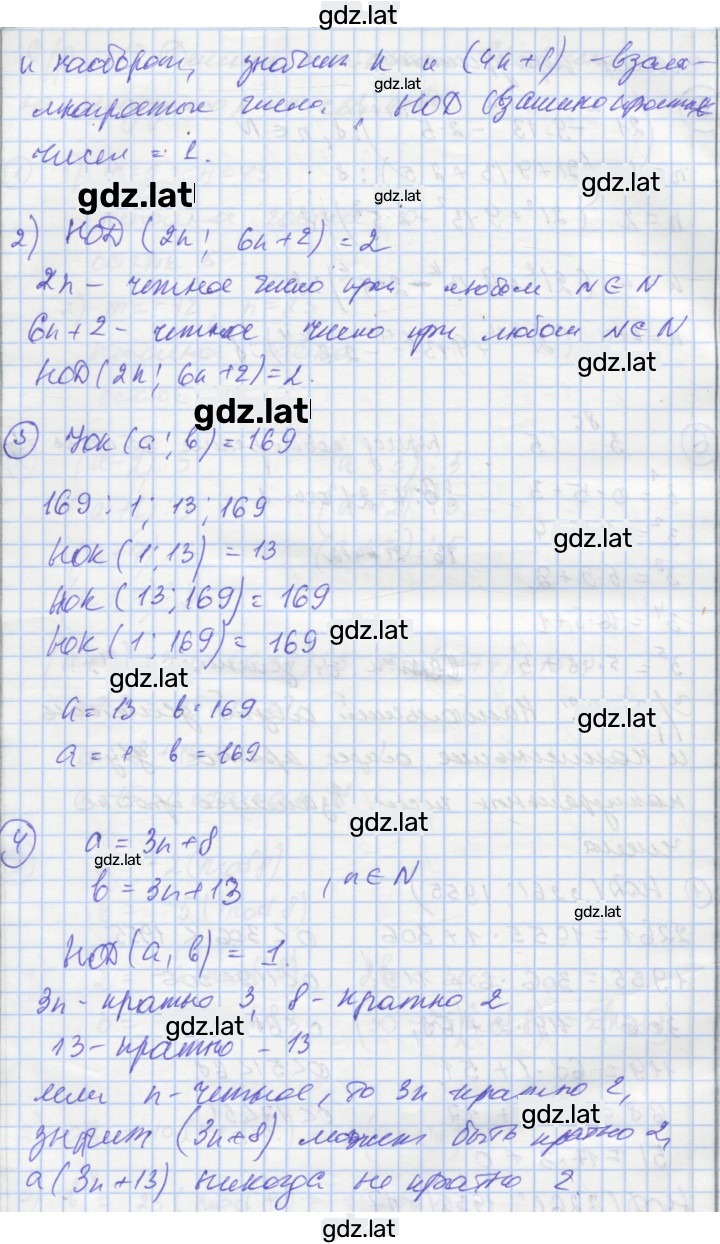 gdz.lat
и наоборот, значит n и (4n+1) - взаи-
gdz.lat
мнопростые числа, НОД (взаимно простых
чисел = 1.
gdz.lat
gdz.lat gdz.lat
2) НОД (2n; 6n+2) = 2
2n - четное число при - любом N∈N
6n+2 - четное число при любом N∈N
gdz.lat
НОД(2n; 6n+2)=2.
gdz.lat
3 НОК(a; b) = 169
169 : 1; 13; 169
gdz.lat
НОК (1; 13) = 13
НОК (13; 169) = 169
НОК (1; 169) = 169 gdz.lat
gdz.lat
a = 13 b = 169
gdz.lat
a = 1 b = 169
gdz.lat
4 a = 3n+8
gdz.lat
b = 3n+13 , n∈N
gdz.lat
НОД(a, b) = 1.
3n - кратно 3, 8 - кратно 2
gdz.lat
13 - кратно - 13
если n - четное, то 3n кратно 2,
gdz.lat
значит (3n+8) может быть кратно 2,
а (3n+13) никогда не кратно 2.
gdz.lat